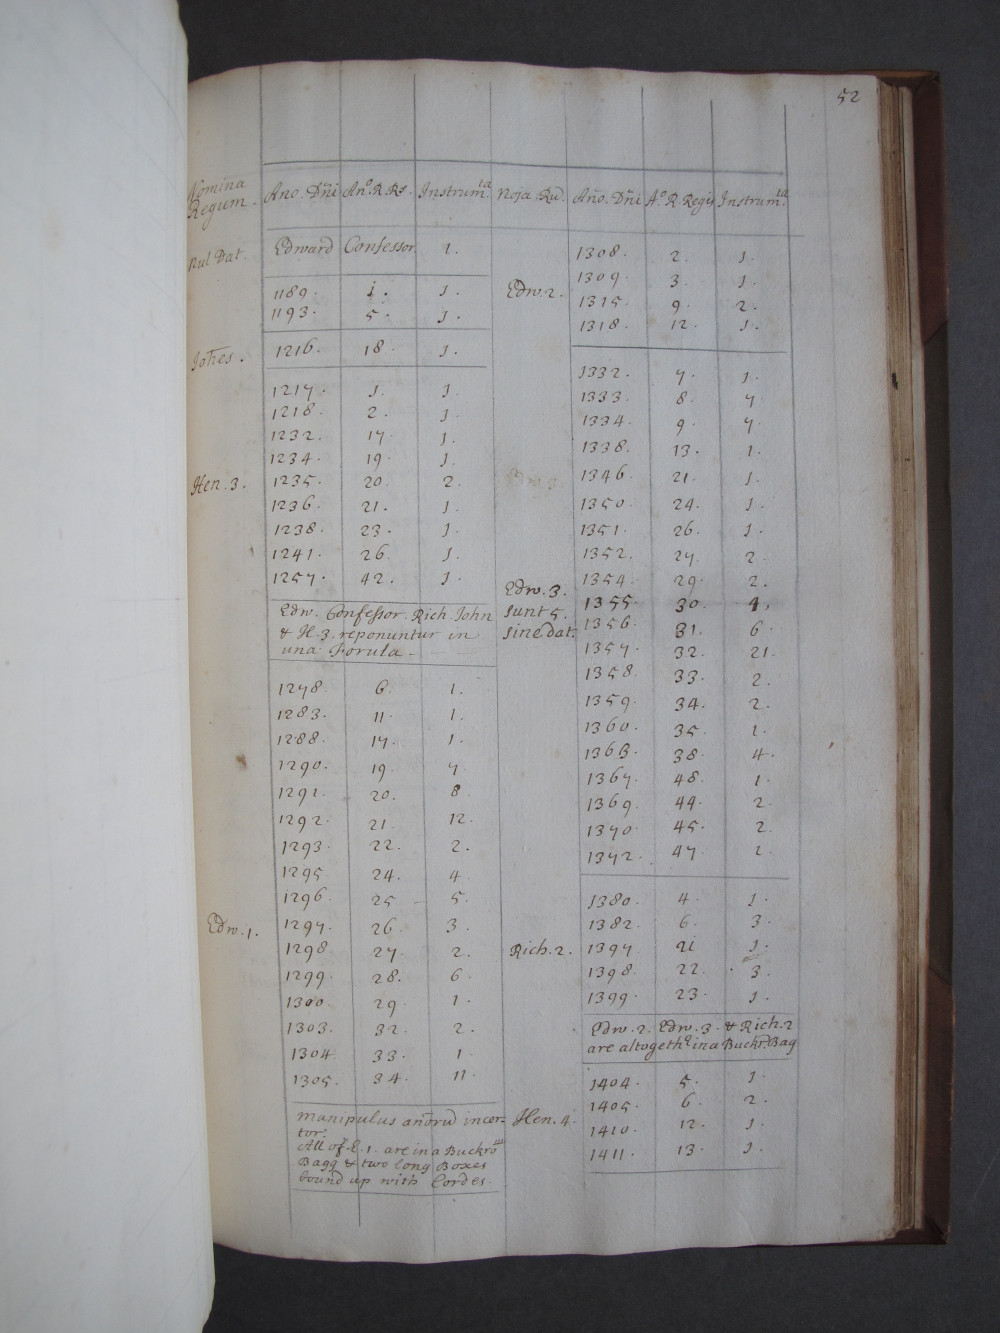 52
Nomina Regum. Ano. Dñi An.º R. Rs. Instrum.ta
Nul Dat. Edward Confessor 1.
1189. 1. 1.
1193. 5. 1.
Johes. 1216. 18. 1.
1217. 1. 1.
1218. 2. 1.
1232. 17. 1.
1234. 19. 1.
Hen. 3. 1235. 20. 2.
1236. 21. 1.
1238. 23. 1.
1241. 26. 1.
1257. 42. 1.
Edw. Confessor. Rich. John
& H. 3. reponuntur in
una Forula
1278. 6. 1.
1283. 11. 1.
1288. 17. 1.
1290. 19. 7.
1291. 20. 8.
1292. 21. 12.
1293. 22. 2.
1295. 24. 4
1296. 25 5.
Edw. 1. 1297. 26. 3.
1298 27. 2.
1299. 28. 6.
1300. 29. 1.
1303. 32. 2.
1304 33. 1.
1305. 34. 11.
Manipulus anoru incer-
tor.
All of E. 1. are in a Buckrã
Bagg & two long Boxes
bound up with Cordes.
Noja Ru. Año. Dñi A.º R. Regis Instrum.ta
1308. 2. 1.
1309. 3. 1.
Edw. 2. 1315. 9. 2.
1318. 12. 1.
1332. 7. 1.
1333. 8. 7
1334. 9. 7.
1338. 13. 1.
Edw. 3. 1346. 21. 1.
1350. 24. 1.
1351. 26. 1.
1352. 27 2.
1354. 29. 2.
Edw. 3. 1355 30. 4.
sunt 5. 1356. 31. 6.
sine dat. 1357. 32. 21.
1358. 33. 2.
1359. 34. 2.
1360. 35. 1.
1363. 38. 4.
1367. 48. 1.
1369. 44. 2.
1370. 45. 2.
1372. 47 2.
1380. 4. 1.
1382. 6. 3.
Rich. 2. 1397 21 1.
1398. 22. 3.
1399. 23. 1.
Edw. 2. Edw. 3. & Rich. 2
are altogethr in a Buckr. Bag
1404. 5. 1.
1405. 6. 2.
Hen. 4. 1410. 12. 1.
1411. 13. 1.